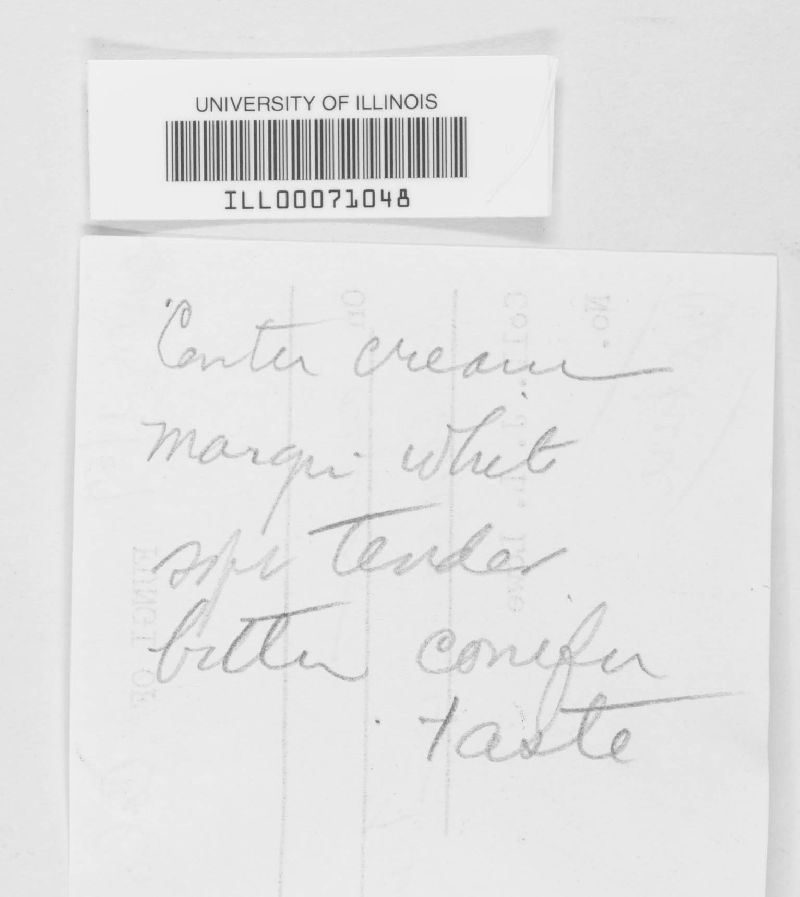 UNIVERSITY OF ILLINOIS
ILL00071048
Center cream
margin white
tender
bitter conifer
taste